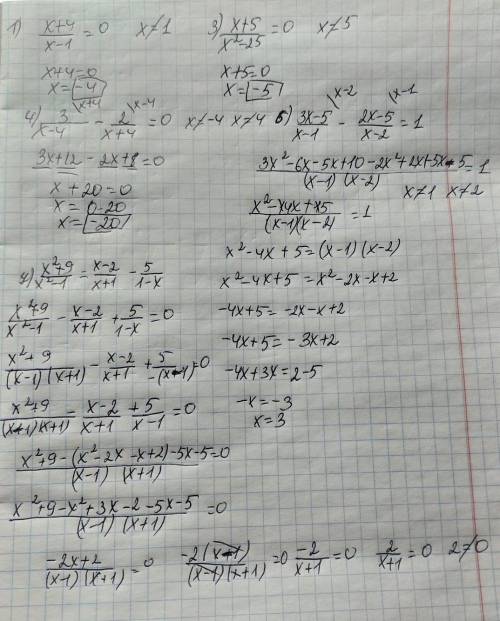 1) (x+4)/(x-1) = 0   x≠1
x+4=0
x=-4
3) (x+5)/(x²-25) = 0   x≠5
x+5=0
x=-5
4) 3/(x-4) \x+4 - 2/(x+4) \x-4 = 0   x≠-4   x≠4
3x+12-2x+8=0
x+20=0
x=0-20
x=-20
6) (3x-5)/(x-1) \x-2 - (2x-5)/(x-2) \x-1 = 1
(3x²-6x-5x+10-2x²+2x+5x-5)/((x-1)(x-2)) = 1
x≠1   x≠2
(x²-4x+5)/((x-1)(x-2)) = 1
x²-4x+5=(x-1)(x-2)
x²-4x+5=x²-2x-x+2
-4x+5=-2x-x+2
-4x+5=-3x+2
-4x+3x=2-5
-x=-3
x=3
(x²+9)/(x²-1) = (x-2)/(x+1) - 5/(1-x)
(x²+9)/(x²-1) - (x-2)/(x+1) + 5/(1-x) = 0
(x²+9)/((x-1)(x+1)) - (x-2)/(x+1) + 5/(-(x-1)) = 0
(x²+9)/((x-1)(x+1)) = (x-2)/(x+1) + 5/(x-1) = 0
(x²+9-(x²-2x-x+2)-5x-5)/((x-1)(x+1)) = 0
(x²+9-x²+3x-2-5x-5)/((x-1)(x+1)) = 0
(-2x+2)/((x-1)(x+1)) = 0   (-2(x-1))/((x-1)(x+1)) = 0   -2/(x+1) = 0   2/(x+1) = 0   2≠0